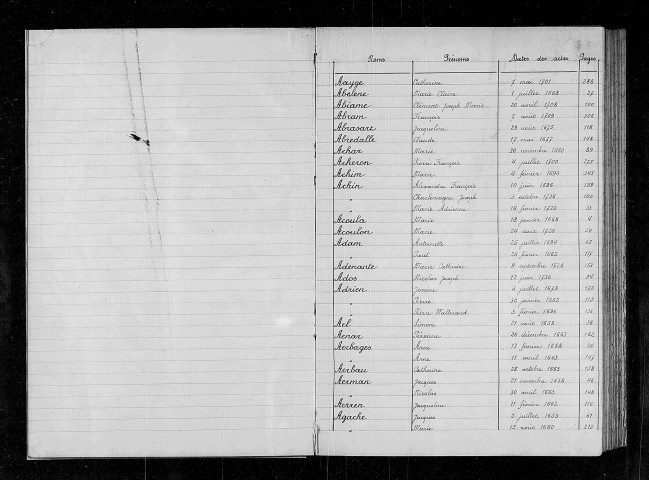 Noms Prénoms Dates des actes Pages
Aayge Catherine 7 mai 1701 288
Abelene Marie Claire 1 juillet 1668 27
Abiame Clément Joseph Marie 20 avril 1708 100
Abram François 2 août 1709
Abrasart Jacqueline 29 août 1675 118
Abredalle Claude 17 mai 1677
Achar Marie 30 novembre 1680 89
Acheron Pierre François 4 juillet 1700
Achim Marie 4 février 1690
Achin Alexandre François 10 juin 1696
" Charlemagne Joseph 3 octobre 1736 180
" Marie Adrienne 18 février 1720
Acoula Marie 18 janvier 1668
Acoulon Marie 24 août 1720
Adam Antoinette 25 juillet 1694
" Paul 26 février 1662
Adenante Marie Catherine 9 septembre 1728
Ados Nicolas Joseph 12 juin 1736
Adrien Jossine 4 juillet 1678
" Pierre 30 janvier 1662
" Pierre 3 février 1686
Ael Simon 21 août 1658
Aenar 26 décembre 1663
Aerbages Anne 13 février 1668
" Anne 11 avril 1663
Aerbau Catherine 28 octobre 1663
Aerman Jacques 21 novembre 1658
" Nicolas 30 avril 1663
Aerren Jacqueline 11 février 1662
Agache Jacques 2 juillet 1659
" Marie 13 août 1680 213